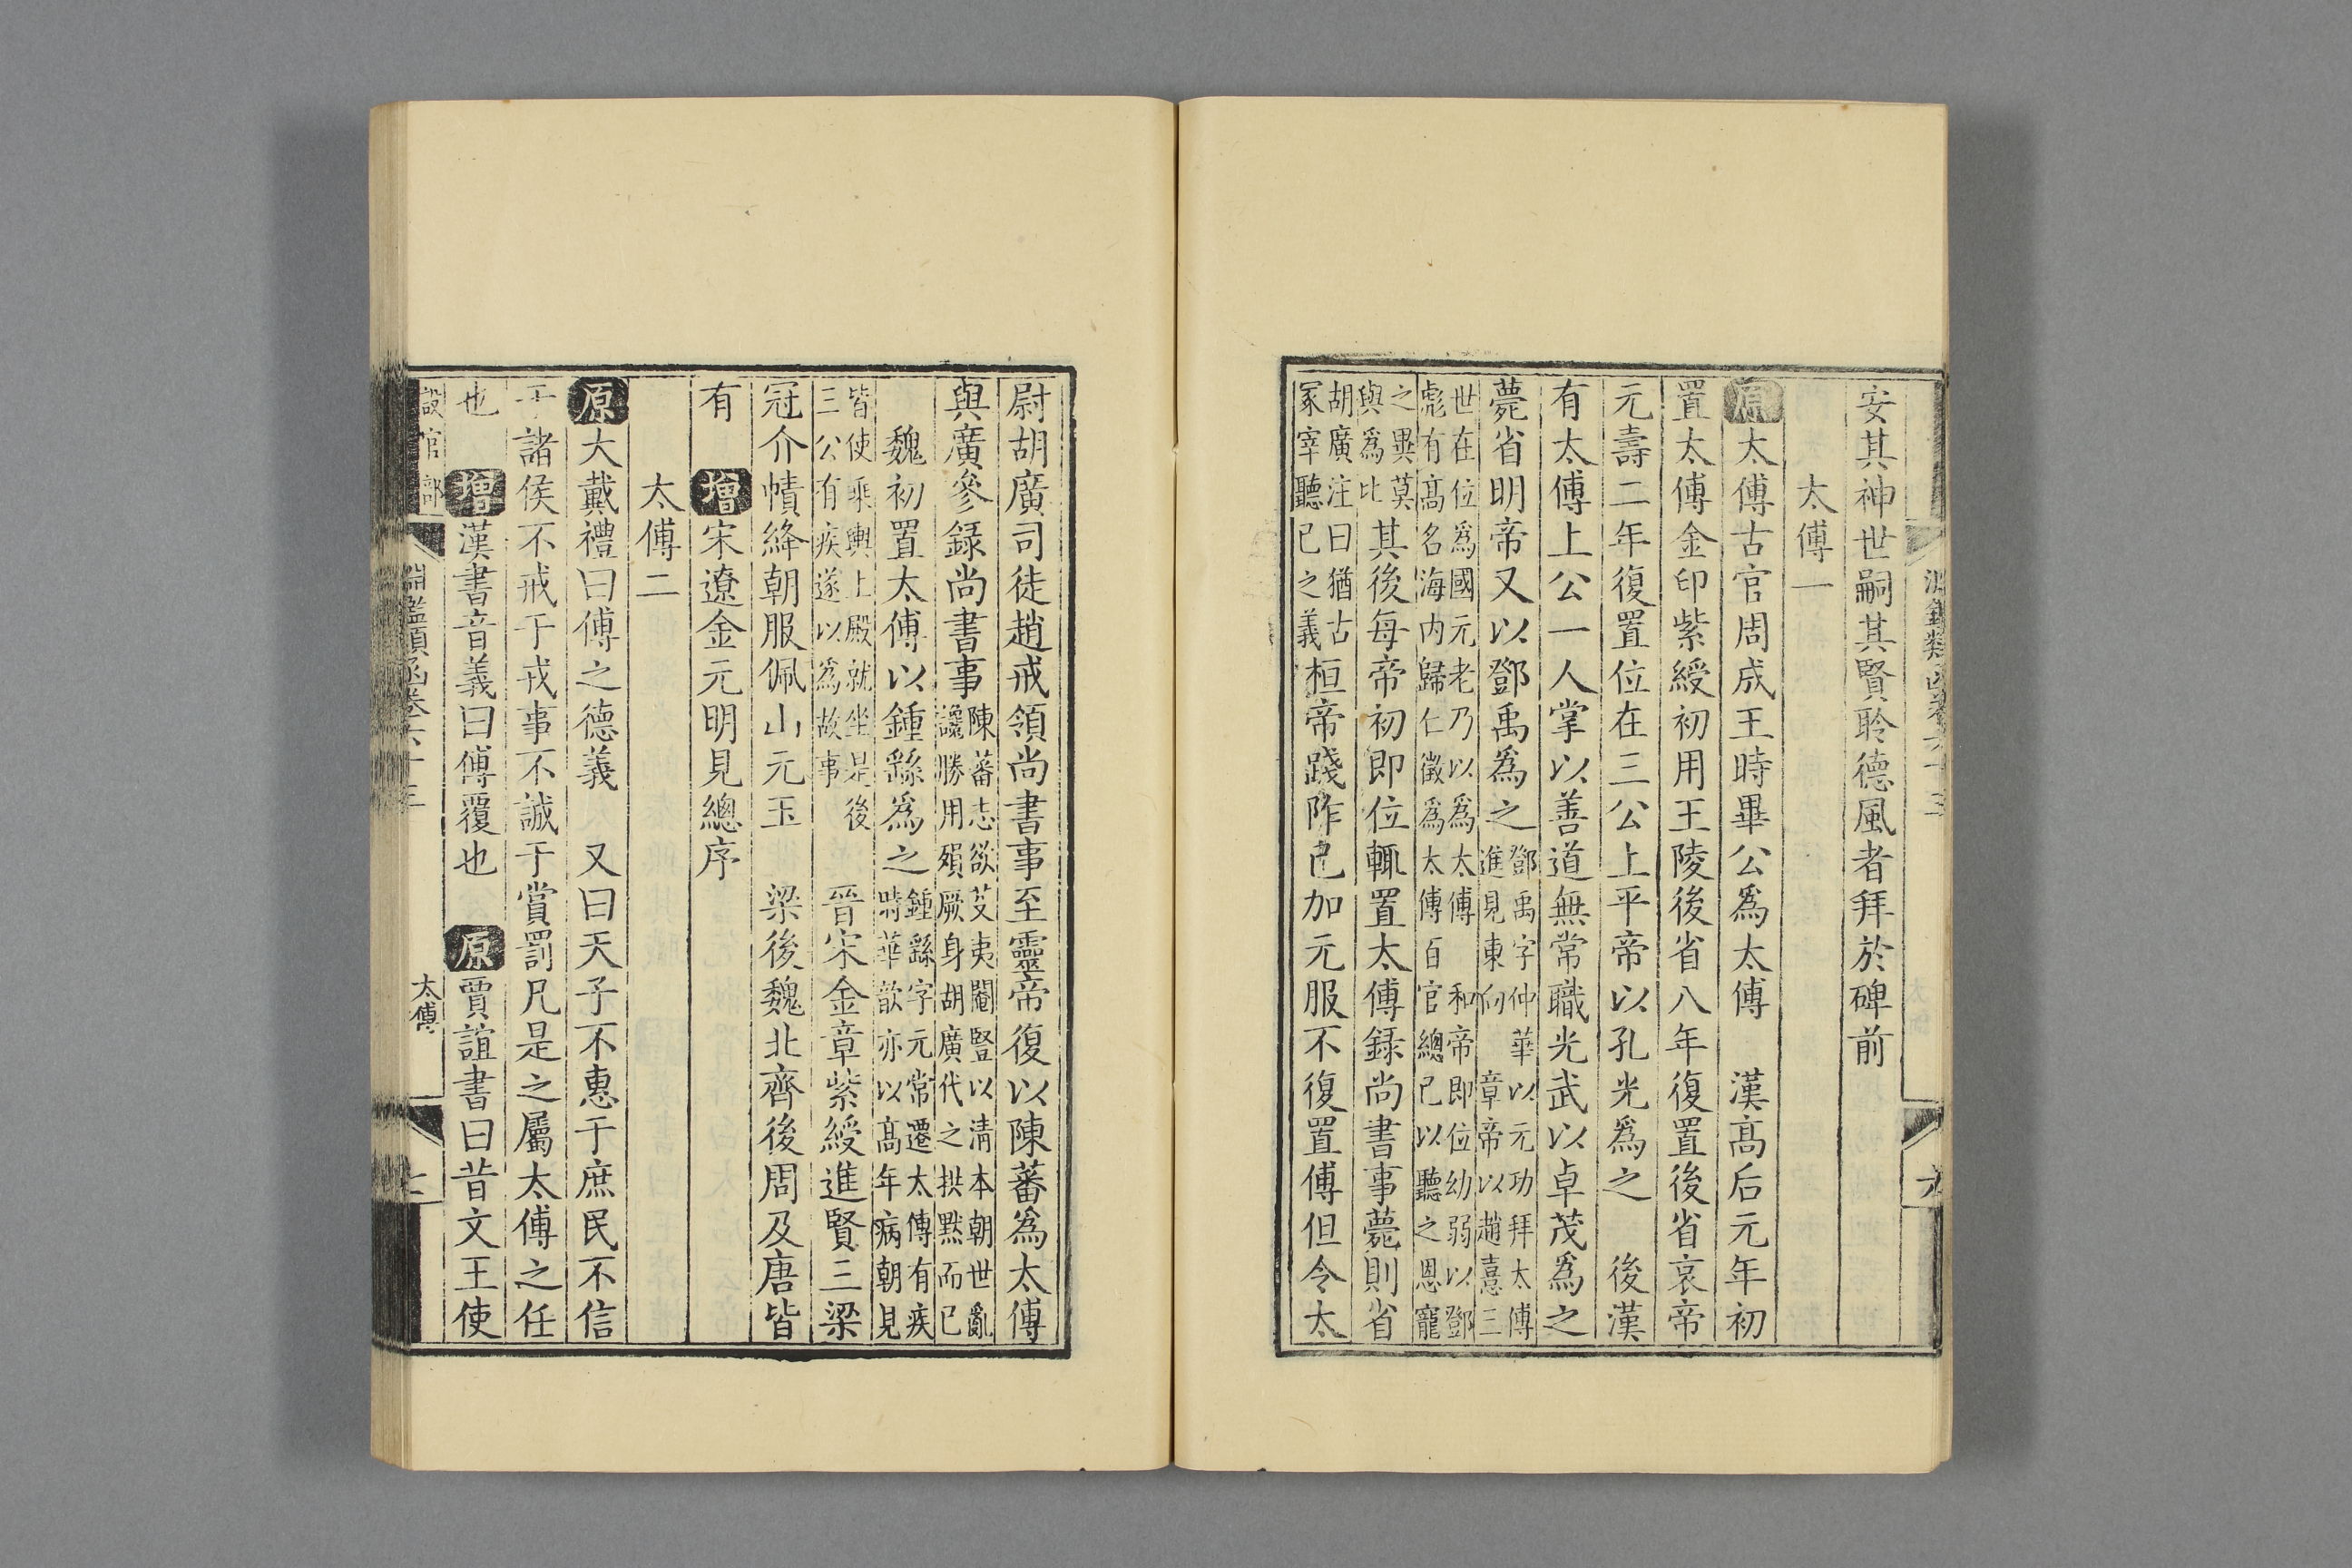 安其神世嗣其賢聆德風者拜於碑前
太傅一
原太傅古官周成王時畢公爲太傅　漢髙后元年初
置太傅金印紫綬初用王陵後省八年復置後省哀帝
元壽二年復置位在三公上平帝以孔光爲之　後漢
有太傅上公一人掌以善道無常職光武以卓茂爲之
薨省明帝又以鄧禹爲之鄧禹字仲華以元功拜太傅
進見東向　章帝以趙憙三
世在位爲國元老乃以爲太傅　和帝即位幼弱以鄧
彪有髙名海内歸仁徵爲太傅百官總已以聽之恩寵
之異莫
與爲比其後每帝初即位輒置太傅録尚書事薨則省
胡廣注曰猶古
冢宰聽已之義桓帝踐阼已加元服不復置傅但令太
尉胡廣司徒趙戒領尚書事至靈帝復以陳蕃爲太傅
與廣參録尚書事陳蕃志欲芟夷閹豎以清本朝世亂
讒勝用殞厥身胡廣代之拱黙而已
魏初置太傅以鍾繇爲之鍾繇字元常遷太傅有疾
時華歆亦以髙年病朝見
皆使乘輿上殿就坐是後
三公有疾遂以爲故事　晉宋金章紫綬進賢三梁
冠介幘絳朝服佩山元玉　梁後魏北齊後周及唐皆
有　增宋遼金元明見總序
太傅二
原大戴禮曰傅之德義　又曰天子不惠于庶民不信
于諸侯不戒于戎事不誠于賞罰凡是之屬太傅之任
也　增漢書音義曰傅覆也　原賈誼書曰昔文王使
設官部
淵鑑類函卷六十三
太傅
七